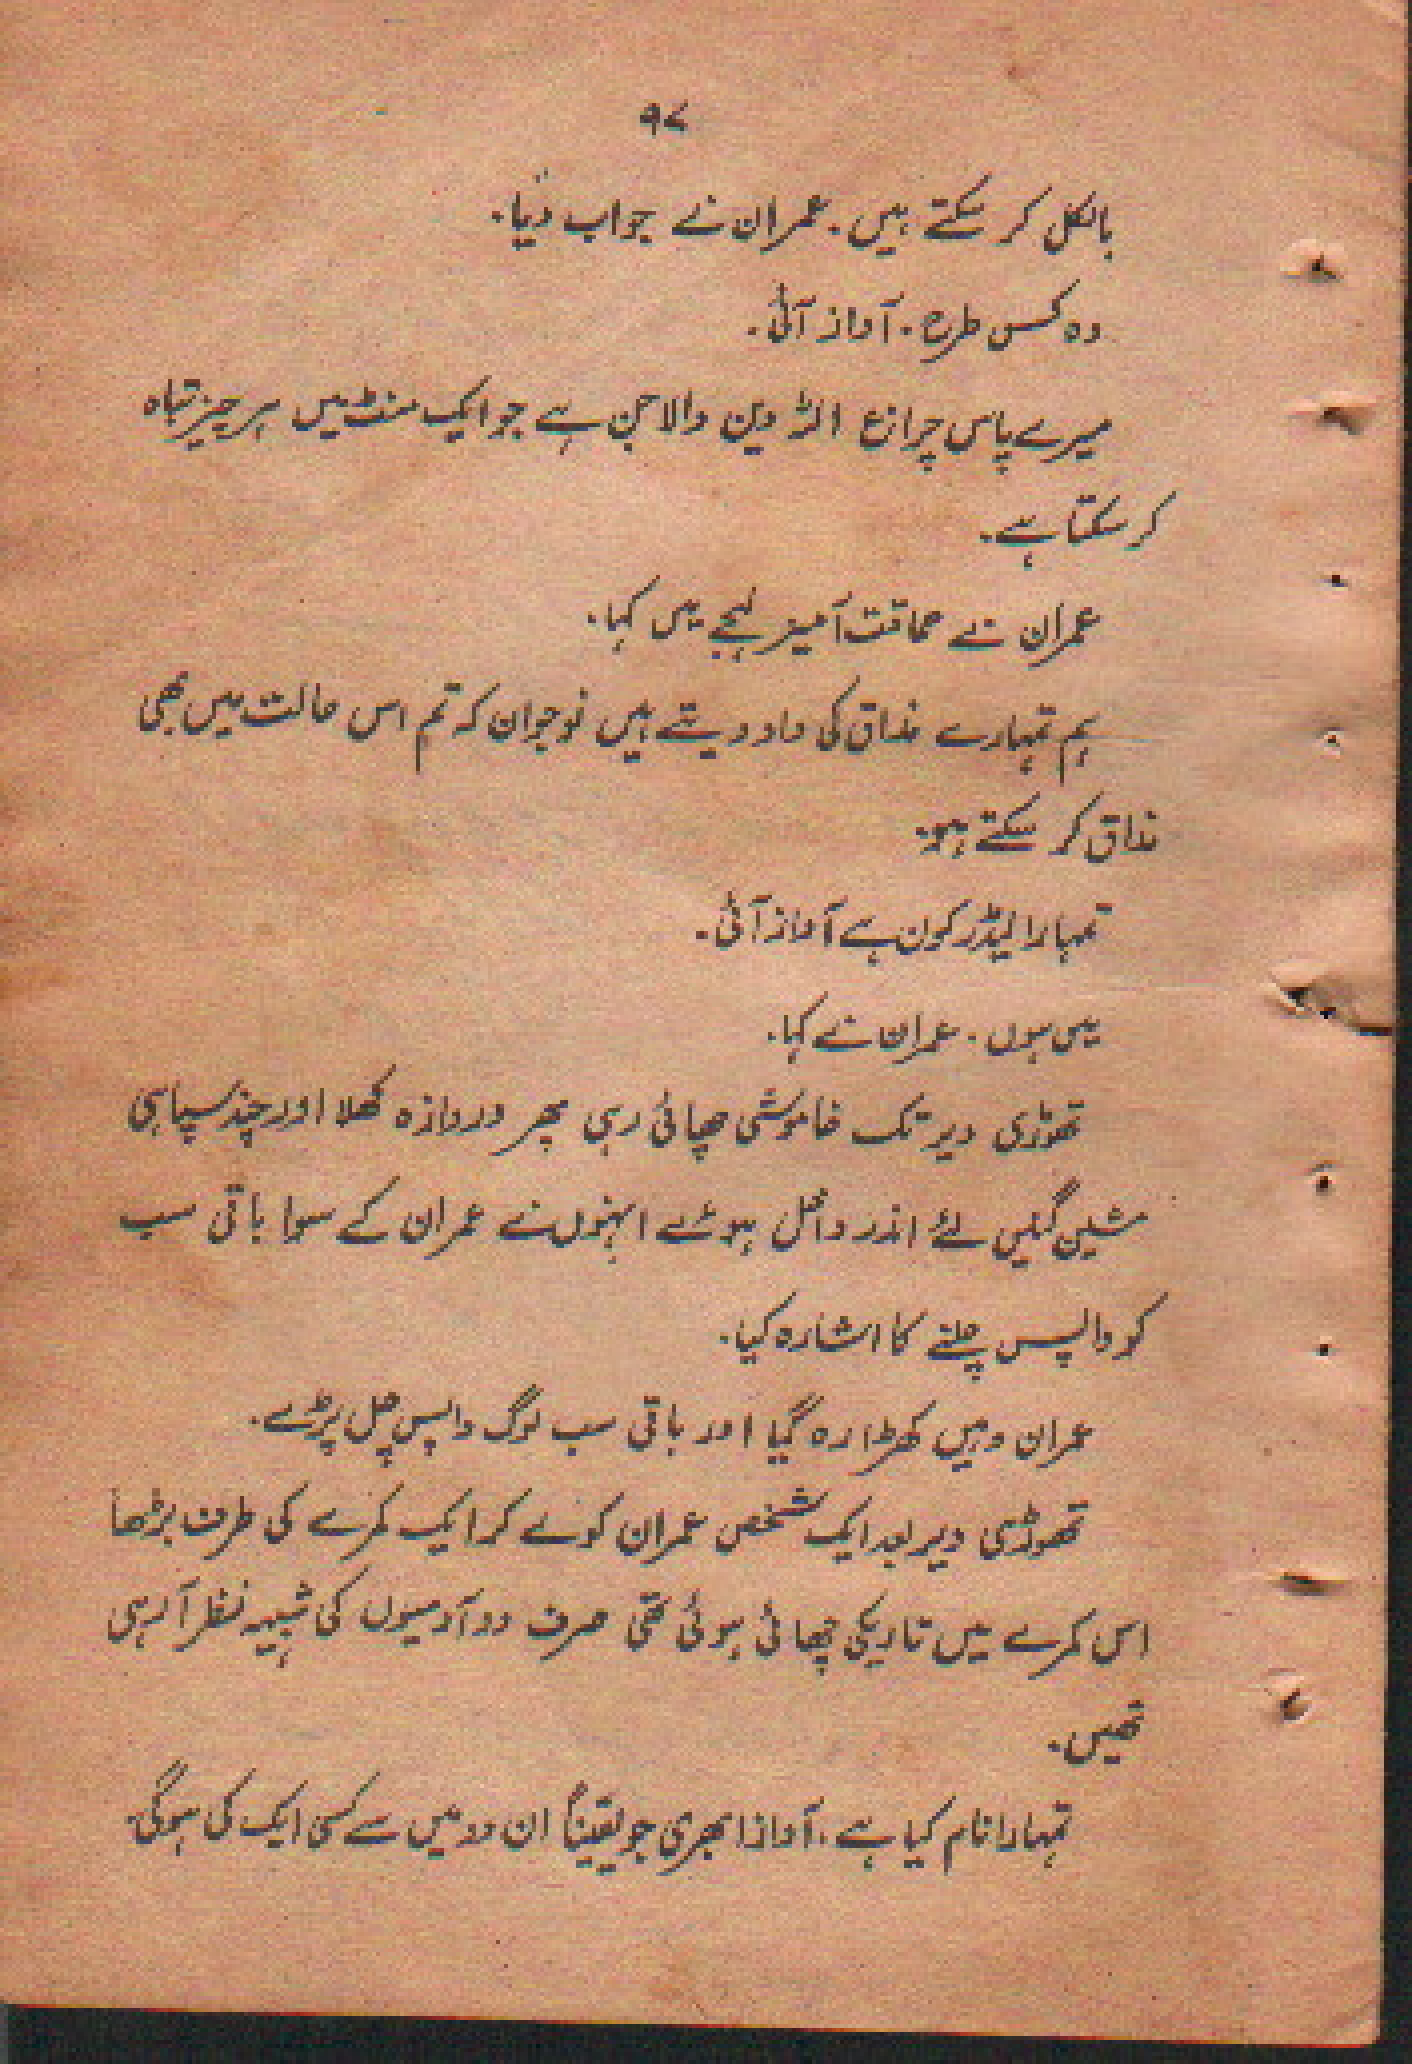 ۹۷
بالکل کر سکتے ہیں۔ عمران نے جواب دیا۔
وہ کس طرح۔ آواز آئی۔
میرے پاس چراغ الہ دین والا جن ہے جو ایک منٹ میں ہر چیز تباہ
کر سکتا ہے۔
عمران نے حماقت آمیز لہجے میں کہا۔
ہم تمہارے مذاق کی داد دیتے ہیں نوجوان کہ تم اس حالت میں بھی
مذاق کر سکتے ہو۔
تمہارا لیڈر کون ہے آواز آئی۔
میں ہوں۔ عمران نے کہا۔
تھوڑی دیر تک خاموشی چھائی رہی پھر دروازہ کھلا اور چند سپاہی
مشین گنیں لئے اندر داخل ہوئے انہوں نے عمران کے سوا باقی سب
کو واپس چلنے کا اشارہ کیا۔
عمران وہیں کھڑا رہ گیا اور باقی سب لوگ واپس چل پڑے۔
تھوڑی دیر بعد ایک شخص عمران کو لے کر ایک کمرے کی طرف بڑھا
اس کمرے میں تاریکی چھائی ہوئی تھی صرف دو آدمیوں کی شبیہہ نظر آ رہی
تھیں۔
تمہارا نام کیا ہے۔ آواز ابھری جو یقیناً ان دو میں سے کسی ایک کی ہوگی۔